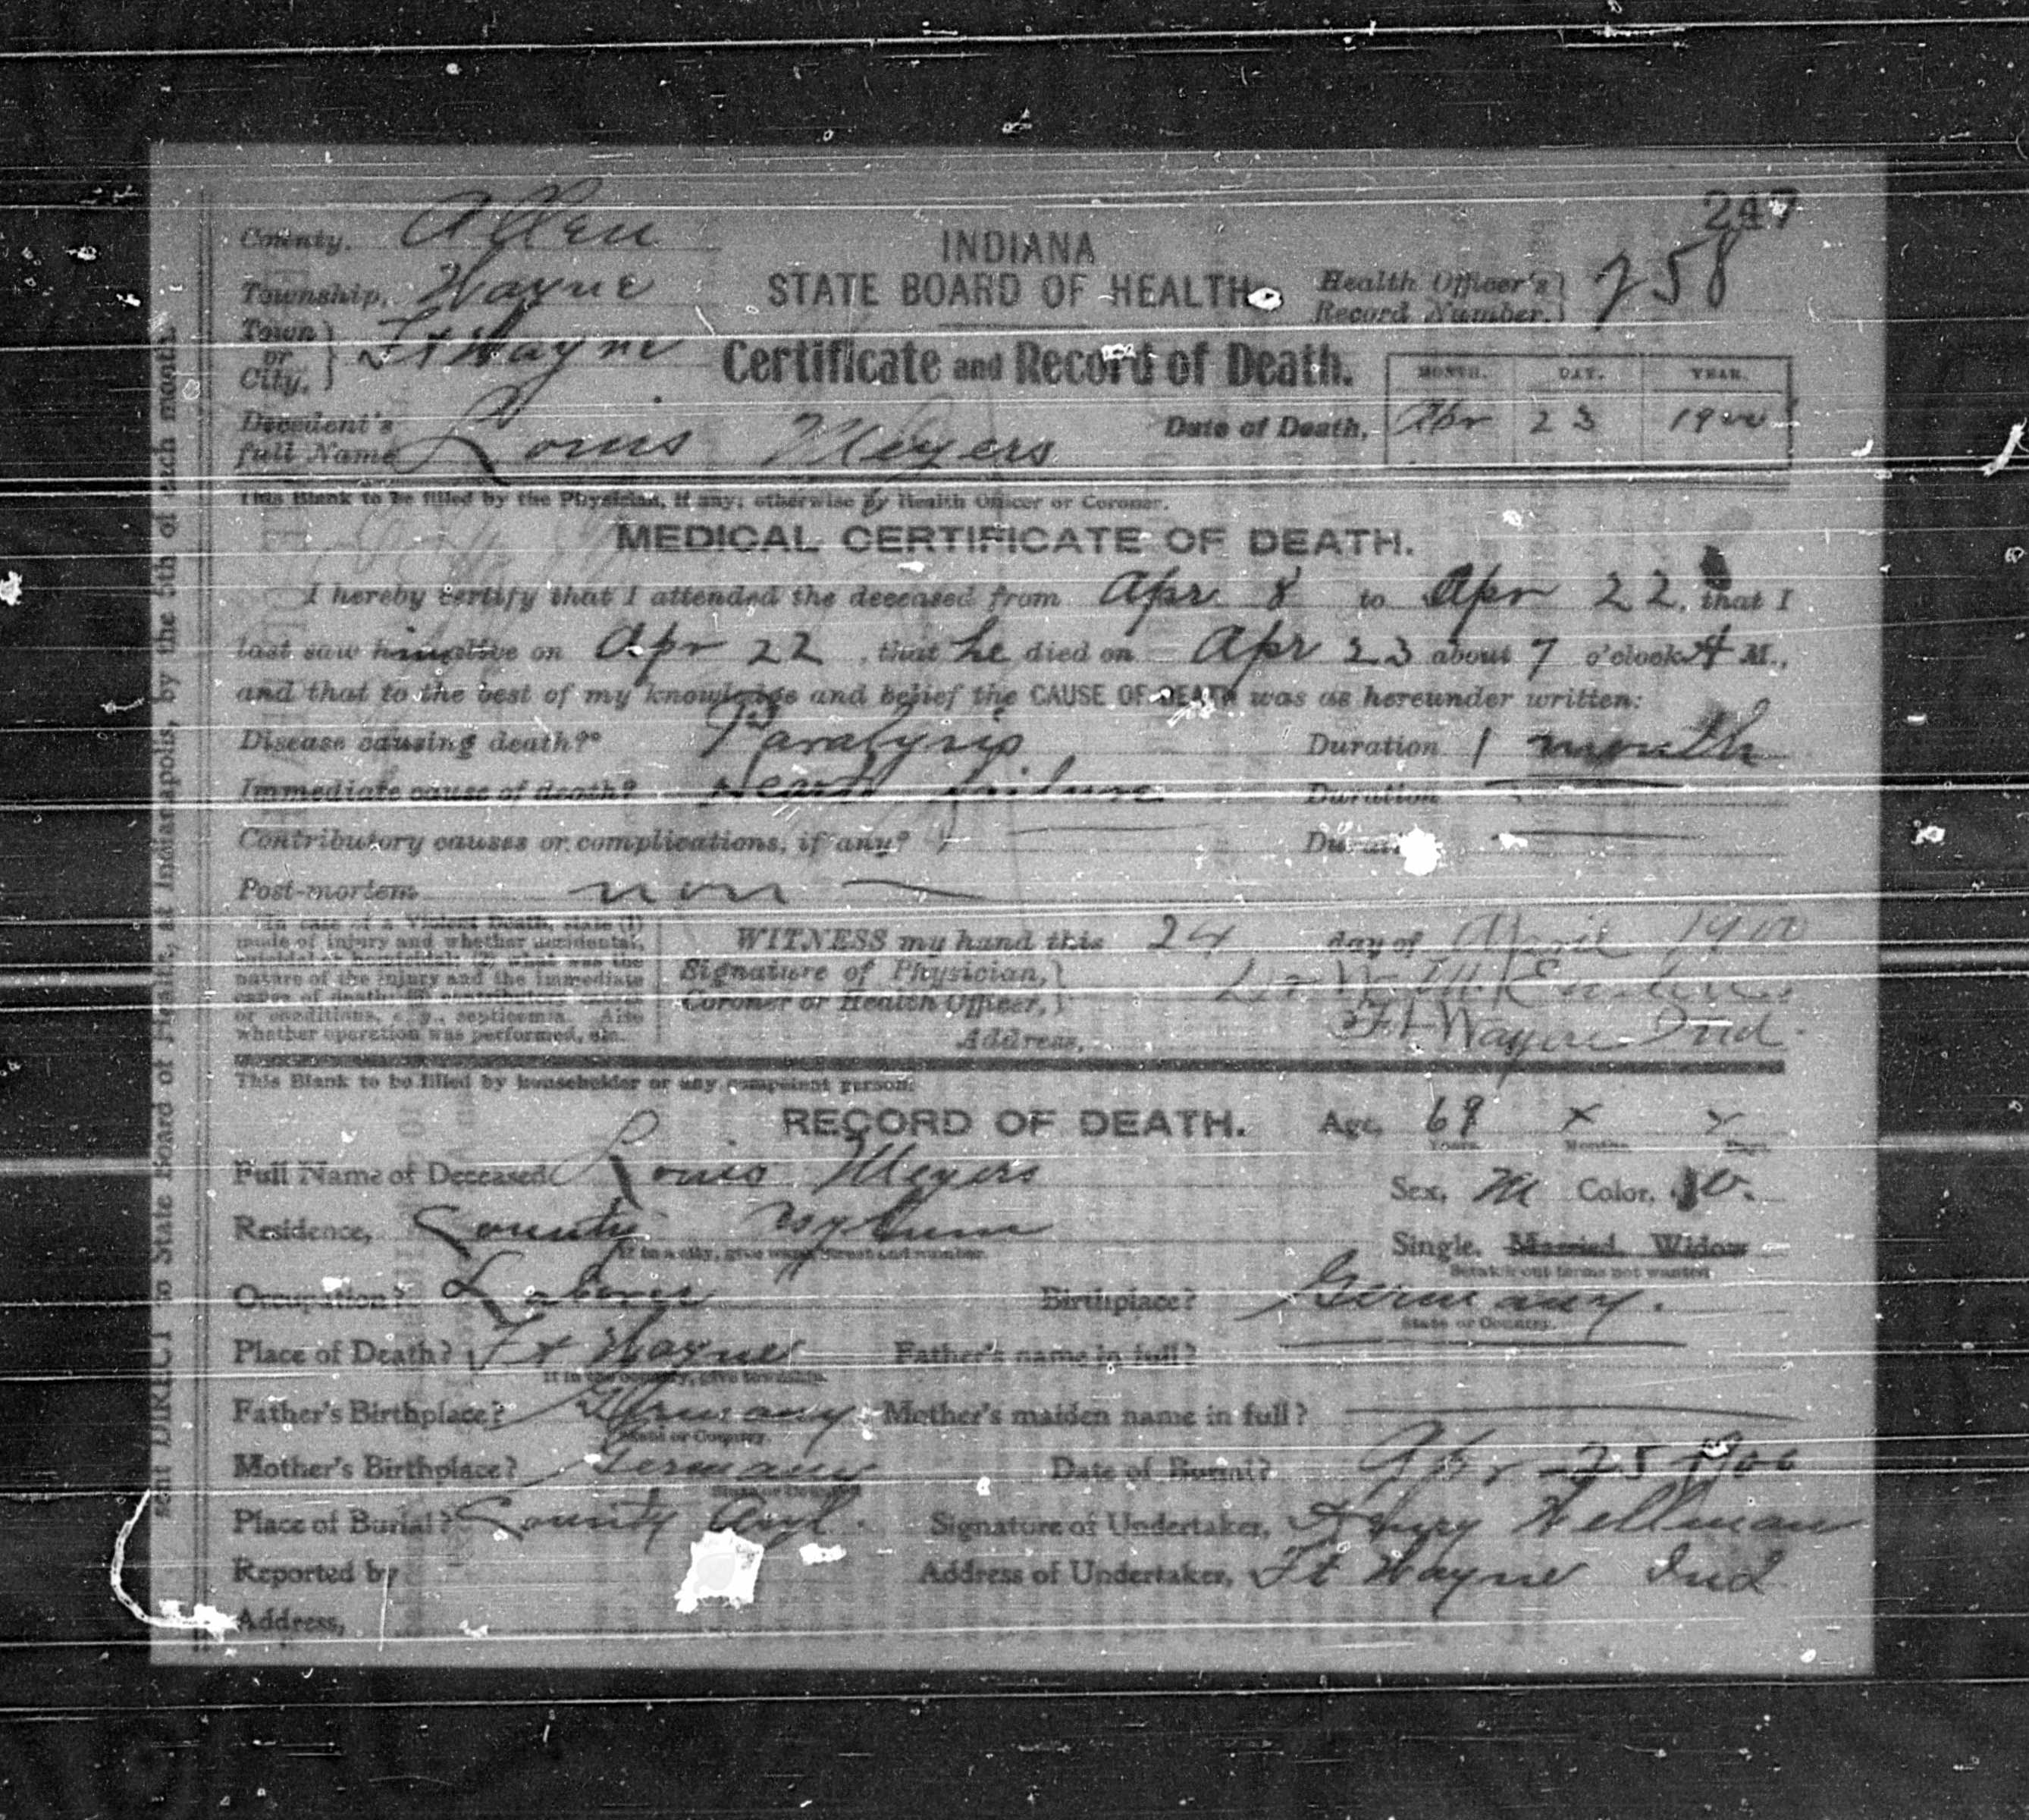 247
County, Allen
INDIANA
Township, Wayne
STATE BOARD OF HEALTH.
Health Officer's Record Number. 258
Town or City, Ft Wayne
Certificate and Record of Death.
MONTH. DAY. YEAR.
Decedent's full Name Louis Meyers
Date of Death, Apr 23 1900
This Blank to be filled by the Physician, if any; otherwise by Health Officer or Coroner.
MEDICAL CERTIFICATE OF DEATH.
I hereby certify that I attended the deceased from Apr 8 to Apr 22, that I
last saw him alive on Apr 22, that he died on Apr 23 about 7 o'clock A M.,
and that to the best of my knowledge and belief the CAUSE OF DEATH was as hereunder written:
Disease causing death? Paralysis Duration 1 month
Immediate cause of death? Heart failure Duration
Contributory causes or complications, if any? Duration
Post-mortem non
In case of a Violent Death, state (1)
mode of injury and whether accidental,
suicidal or homicidal; (2) what was the
nature of the injury and the immediate
cause of death; (3) contributory causes
or conditions, e. g., septicemia. Also
whether operation was performed, etc.
WITNESS my hand this 24 day of April 1900
Signature of Physician, Coroner or Health Officer, Dr W. M.
Address, Ft Wayne Ind.
This Blank to be filled by householder or any competent person.
RECORD OF DEATH. Age, 69 x x
Years. Months. Days.
Full Name of Deceased Louis Meyers
Sex, M Color, W.
Residence, County Asylum
If in a city, give ward, street and number.
Single. Married. Widow
Scratch out terms not wanted
Occupation? Laborer Birthplace? Germany.
State or Country.
Place of Death? Ft Wayne Father's name in full?
If in the country, give township.
Father's Birthplace? Germany Mother's maiden name in full?
State or Country.
Mother's Birthplace? Germany Date of Burial? Apr 25 1900
State or Country
Place of Burial? County Asyl. Signature of Undertaker, Henry Hellman
Reported by Address of Undertaker, Ft Wayne Ind
Address,
sent DIRECT to State Board of Health, at Indianapolis, by the 5th of each month.